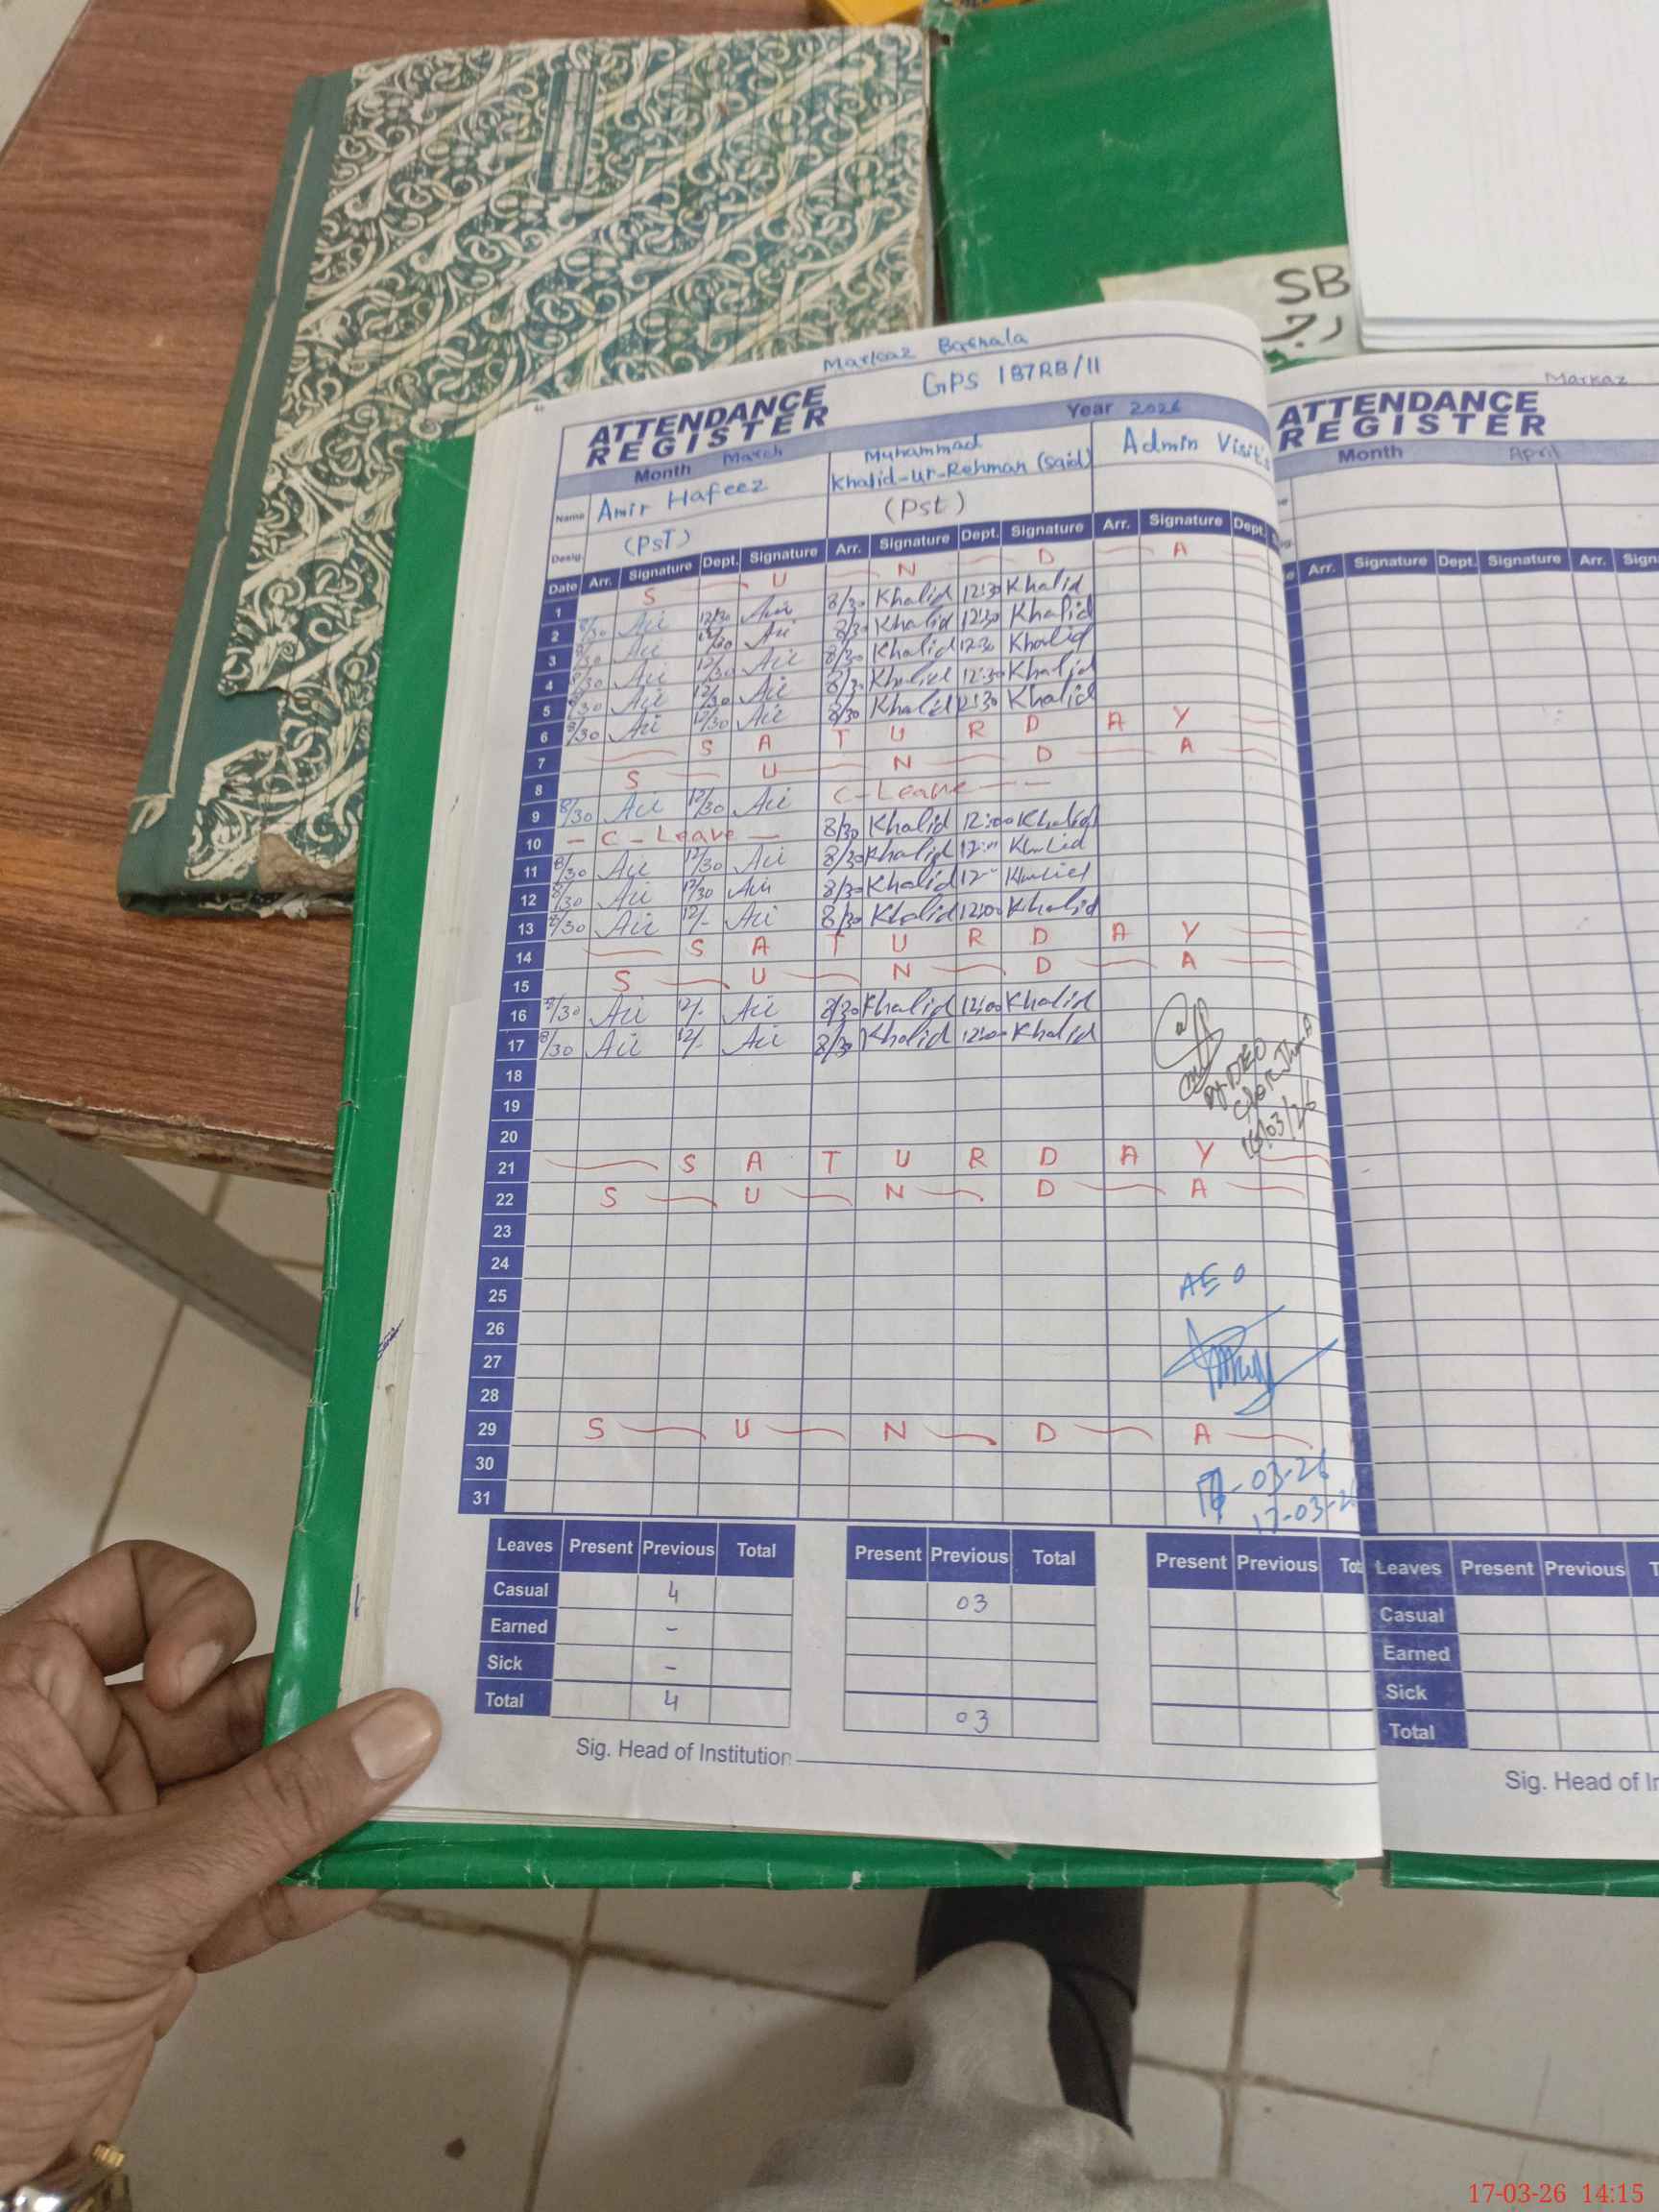 SB
Markaz Bashala
GPS 187RB/11
ATTENDANCE
REGISTER
Month March Year 2026
Name Amir Hafeez Muhammad Khalid-ur-Rehman (Said) Admin Visits
Desig. (PST) (Pst)
Date Arr. Signature Dept. Signature Arr. Signature Dept. Signature Arr. Signature Dept.
1 S U N D A
2 8/30 12/30 8/30 Khalid 12:30 Khalid
3 8/30 12/30 8/30 Khalid 12:30 Khalid
4 8/30 12/30 8/30 Khalid 12:30 Khalid
5 8/30 12/30 8/30 Khalid 12:30 Khalid
6 8/30 12/30 8/30 Khalid 12:30 Khalid
7 S A T U R D A Y
8 S U N D A
9 8/30 12/30 C-Leave
10 C-Leave 8/30 Khalid 12:00 Khalid
11 8/30 12/30 8/30 Khalid 12:00 Khalid
12 8/30 12/30 8/30 Khalid 12 Khalid
13 8/30 12/- 8/30 Khalid 12:00 Khalid
14 S A T U R D A Y
15 S U N D A
16 8/30 12/- 8/30 Khalid 12:00 Khalid
17 8/30 12/- 8/30 Khalid 12:00 Khalid
18
19
20
21 S A T U R D A Y
22 S U N D A
23
24
25 AEO
26
27
28
29 S U N D A
30
31 17-03-26
Leaves Present Previous Total Present Previous Total Present Previous
Casual 4 03
Earned -
Sick -
Total 4 03
Sig. Head of Institution
Markaz
ATTENDANCE
REGISTER
Month April
Arr. Signature Dept. Signature Arr.
Leaves Present Previous
Casual
Earned
Sick
Total
Sig. Head of
17-03-26 14:15